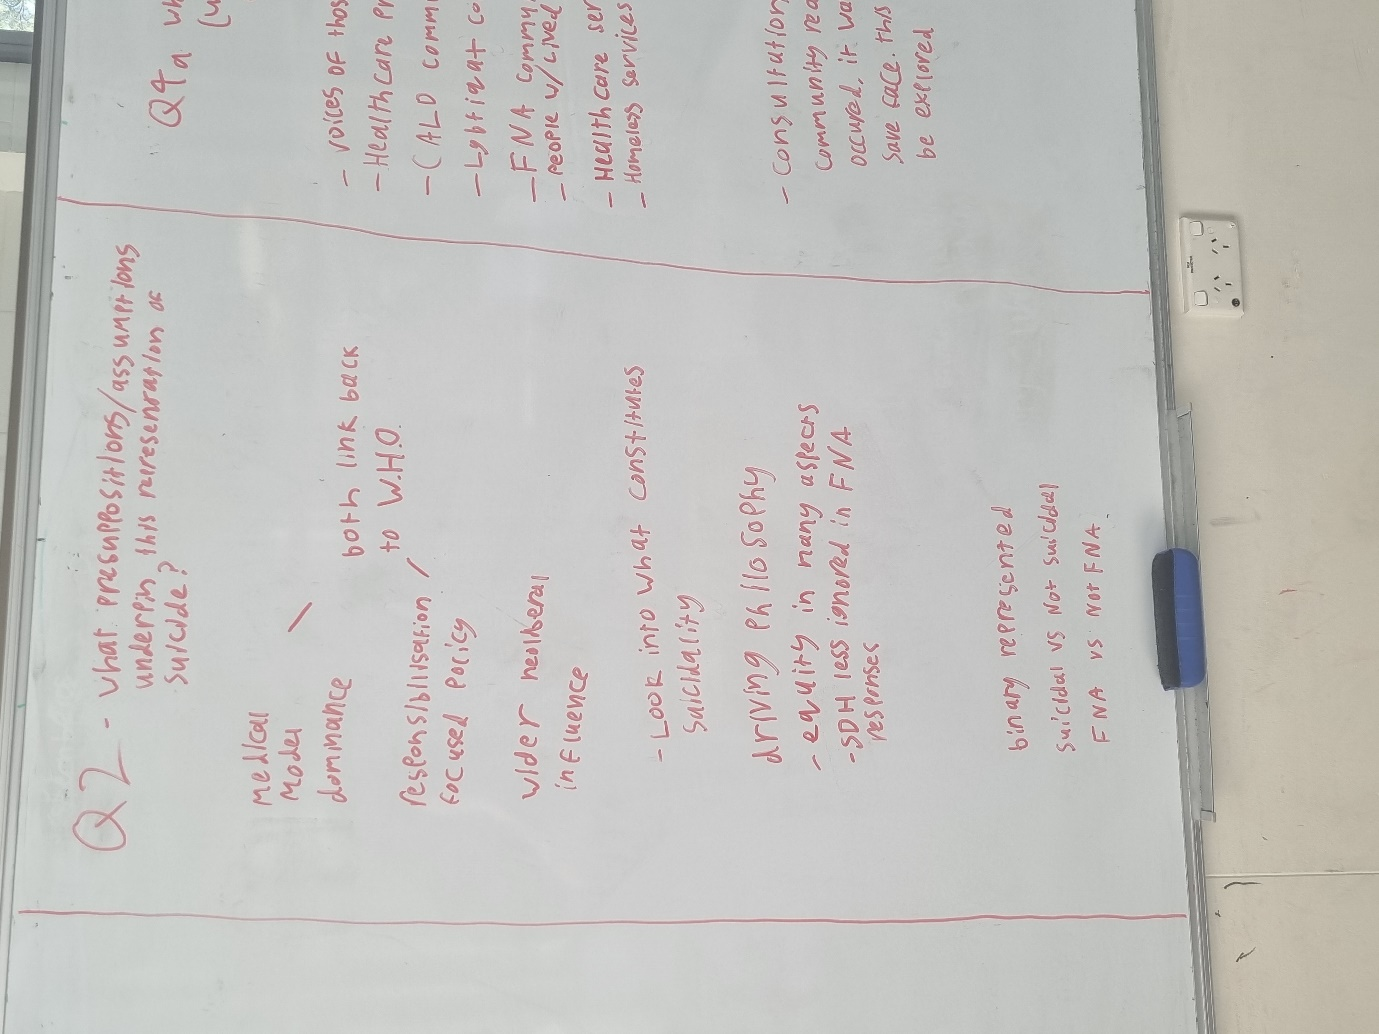 Q2 - what presuppositions/assumptions
underpin this representation of
suicide?
medical
model
dominance
both link back
to W.H.O.
responsibilisation /
focused policy
wider neoliberal
influence
- Look into what constitutes
suicidality
driving philosophy
- equity in many aspects
- SDH less ignored in FNA
responses
binary represented
suicidal vs Not suicidal
FNA vs Not FNA.
Q4a
- voices of
- Healthcare
- CALD
- Lgbtiqat
- FNA
- people w/lived
- Healthcare
- Homeless services
- Consultation
community
occured, it
save face. this
be explored